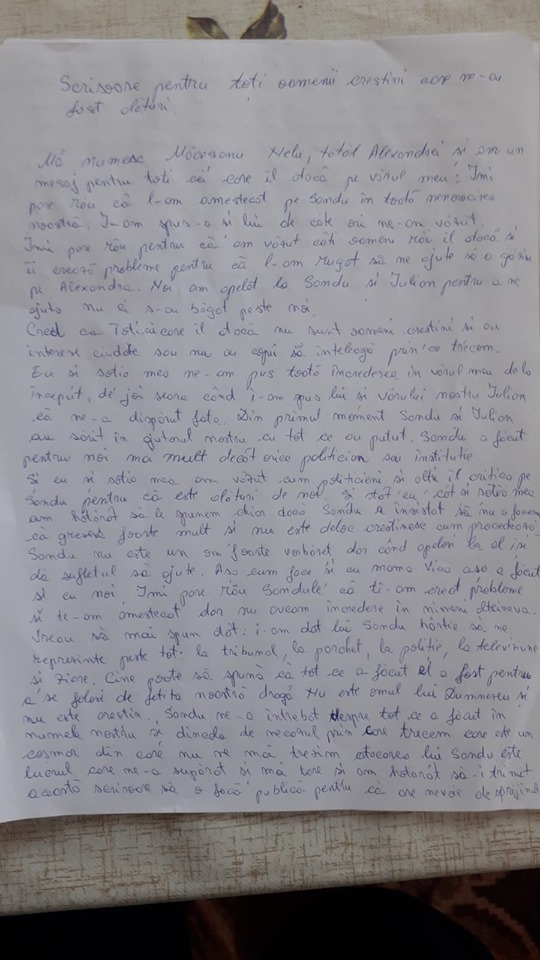 Scrisoare pentru toti oamenii crestini care ne-au
fost alături.
Mă numesc Măceșanu Nelu, tatăl Alexandrei si am un
mesaj pentru toti cei care il atacă pe vărul meu: Imi
pare rău că l-am amestecat pe Sandu în toată nenorocirea
noastră. I-am spus-o si lui de câte ori ne-am văzut.
Imi pare rău pentru că am văzut câti oameni răi il atacă si
ii crează probleme pentru că l-am rugat să ne ajute să o găsim
pe Alexandra. Noi am apelat la Sandu si Iulian pentru a ne
ajuta nu ei s-au băgat peste noi.
Cred ca Toti cei care il atacă nu sunt oameni crestini si au
interese ciudate sau nu au copii să înteleagă prin ce trecem.
Eu si sotia mea ne-am pus toată încrederea în vărul meu de la
început, de joi seara când i-am spus lui si vărului nostru Iulian
că ne-a dispărut fata. Din primul moment Sandu si Iulian
au sărit în ajutorul nostru cu tot ce au putut. Sandu a făcut
pentru noi mai mult decât orice politician sau institutie.
Si eu si sotia mea am văzut cum politicieni si altii il critica pe
Sandu pentru că este alături de noi. Si atât eu cât si sotia mea
am hotărât să le spunem chiar daca Sandu a insistat să nu o facem
că gresesc foarte mult si nu este deloc crestinește cum procedează.
Sandu nu este un om foarte vorbăret dar când apelezi la el isi
dă sufletul să ajute. Asa cum face si cu mama Vica asa a făcut
si cu noi. Imi pare rău Sandule că ti-am creat probleme
si te-am amestecat dar nu aveam incredere în nimeni altcineva.
Vreau să mai spun atât: i-am dat lui Sandu hârtie să ne
reprezinte peste tot: la tribunal, la parchet, la politie, la televiziune
si ziare. Cine poate să spună că tot ce a făcut el a fost pentru
a se folosi de fetita noastră dragă Nu este omul lui Dumnezeu si
nu este crestin. Sandu ne-a intrebat despre tot ce a făcut în
numele nostru si dincolo de necazul prin care trecem care este un
cosmar din care nu ne mai trezim atacarea lui Sandu este
lucrul care ne-a supărat si mai tare si am hotărât să-i trimet
această scrisoare să o facă publică pentru că are nevoie de sprijinul